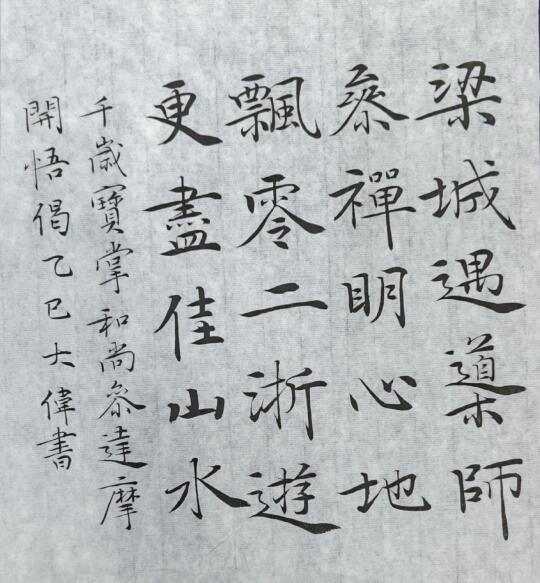 梁城遇導師
叅禪明心地
飄零二浙遊
更盡佳山水
千歲寶掌和尚叅達摩
開悟偈乙巳大偉書